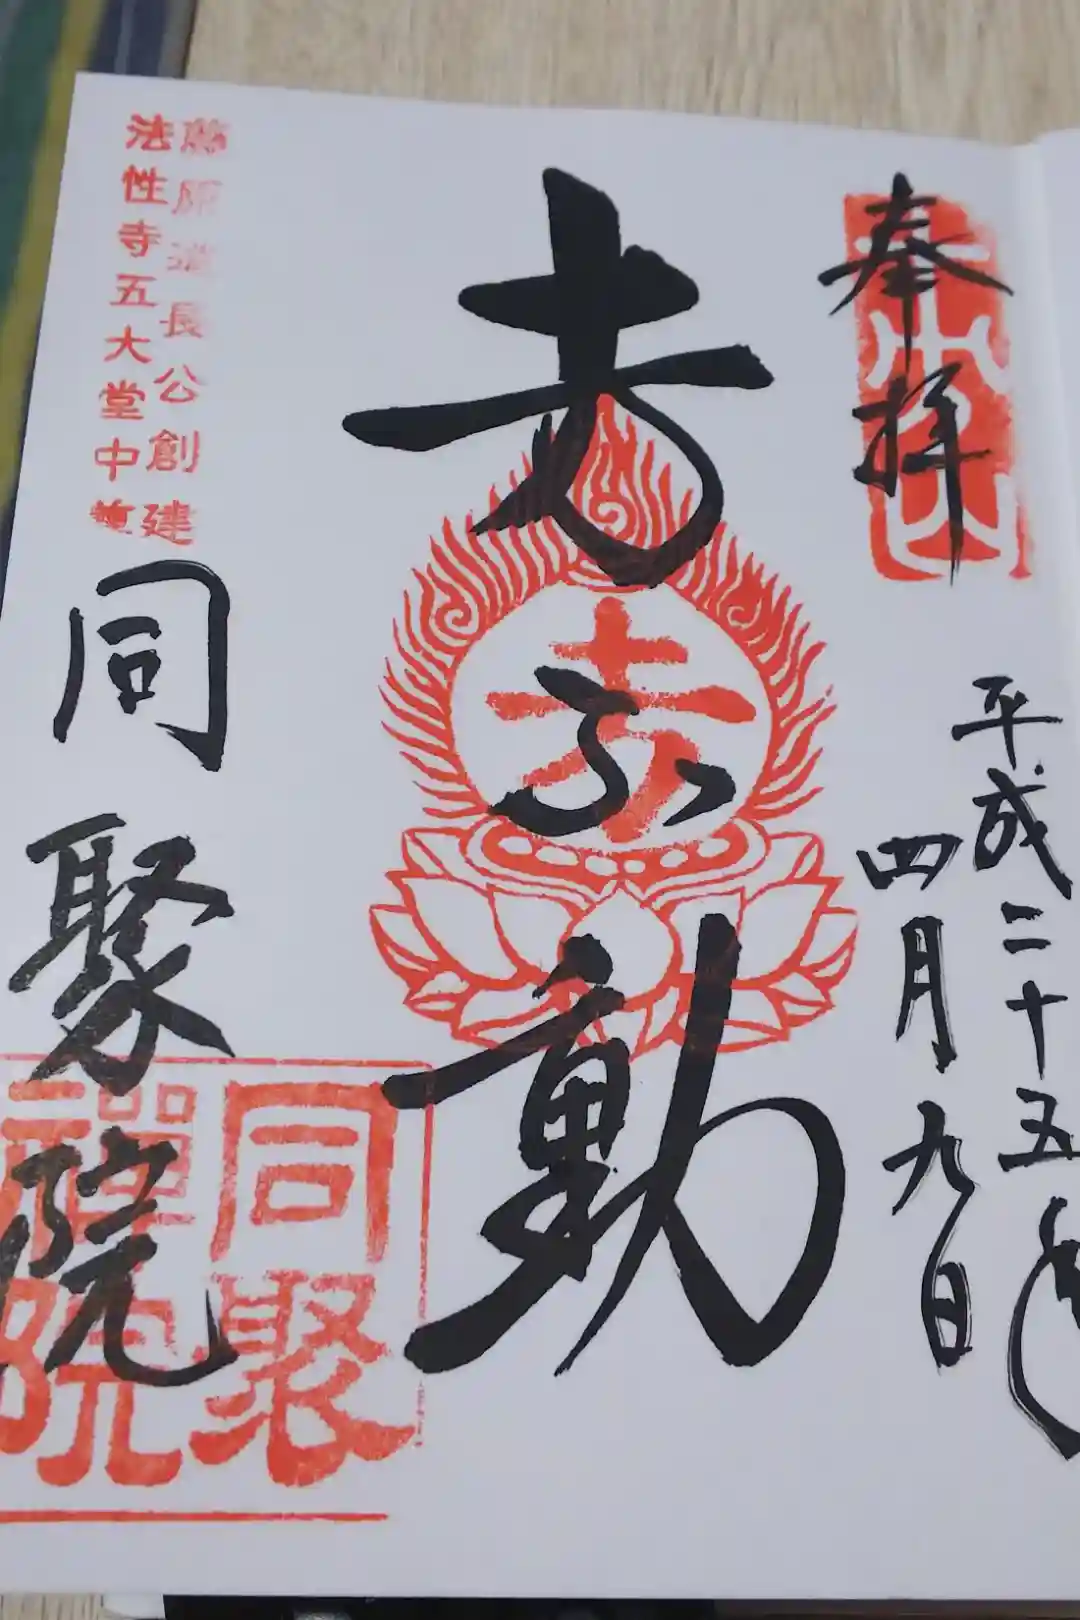 奉拝
平成二十五年
四月九日
不動
藤原道長公創建
法性寺五大堂中
同聚院
同聚
禪院